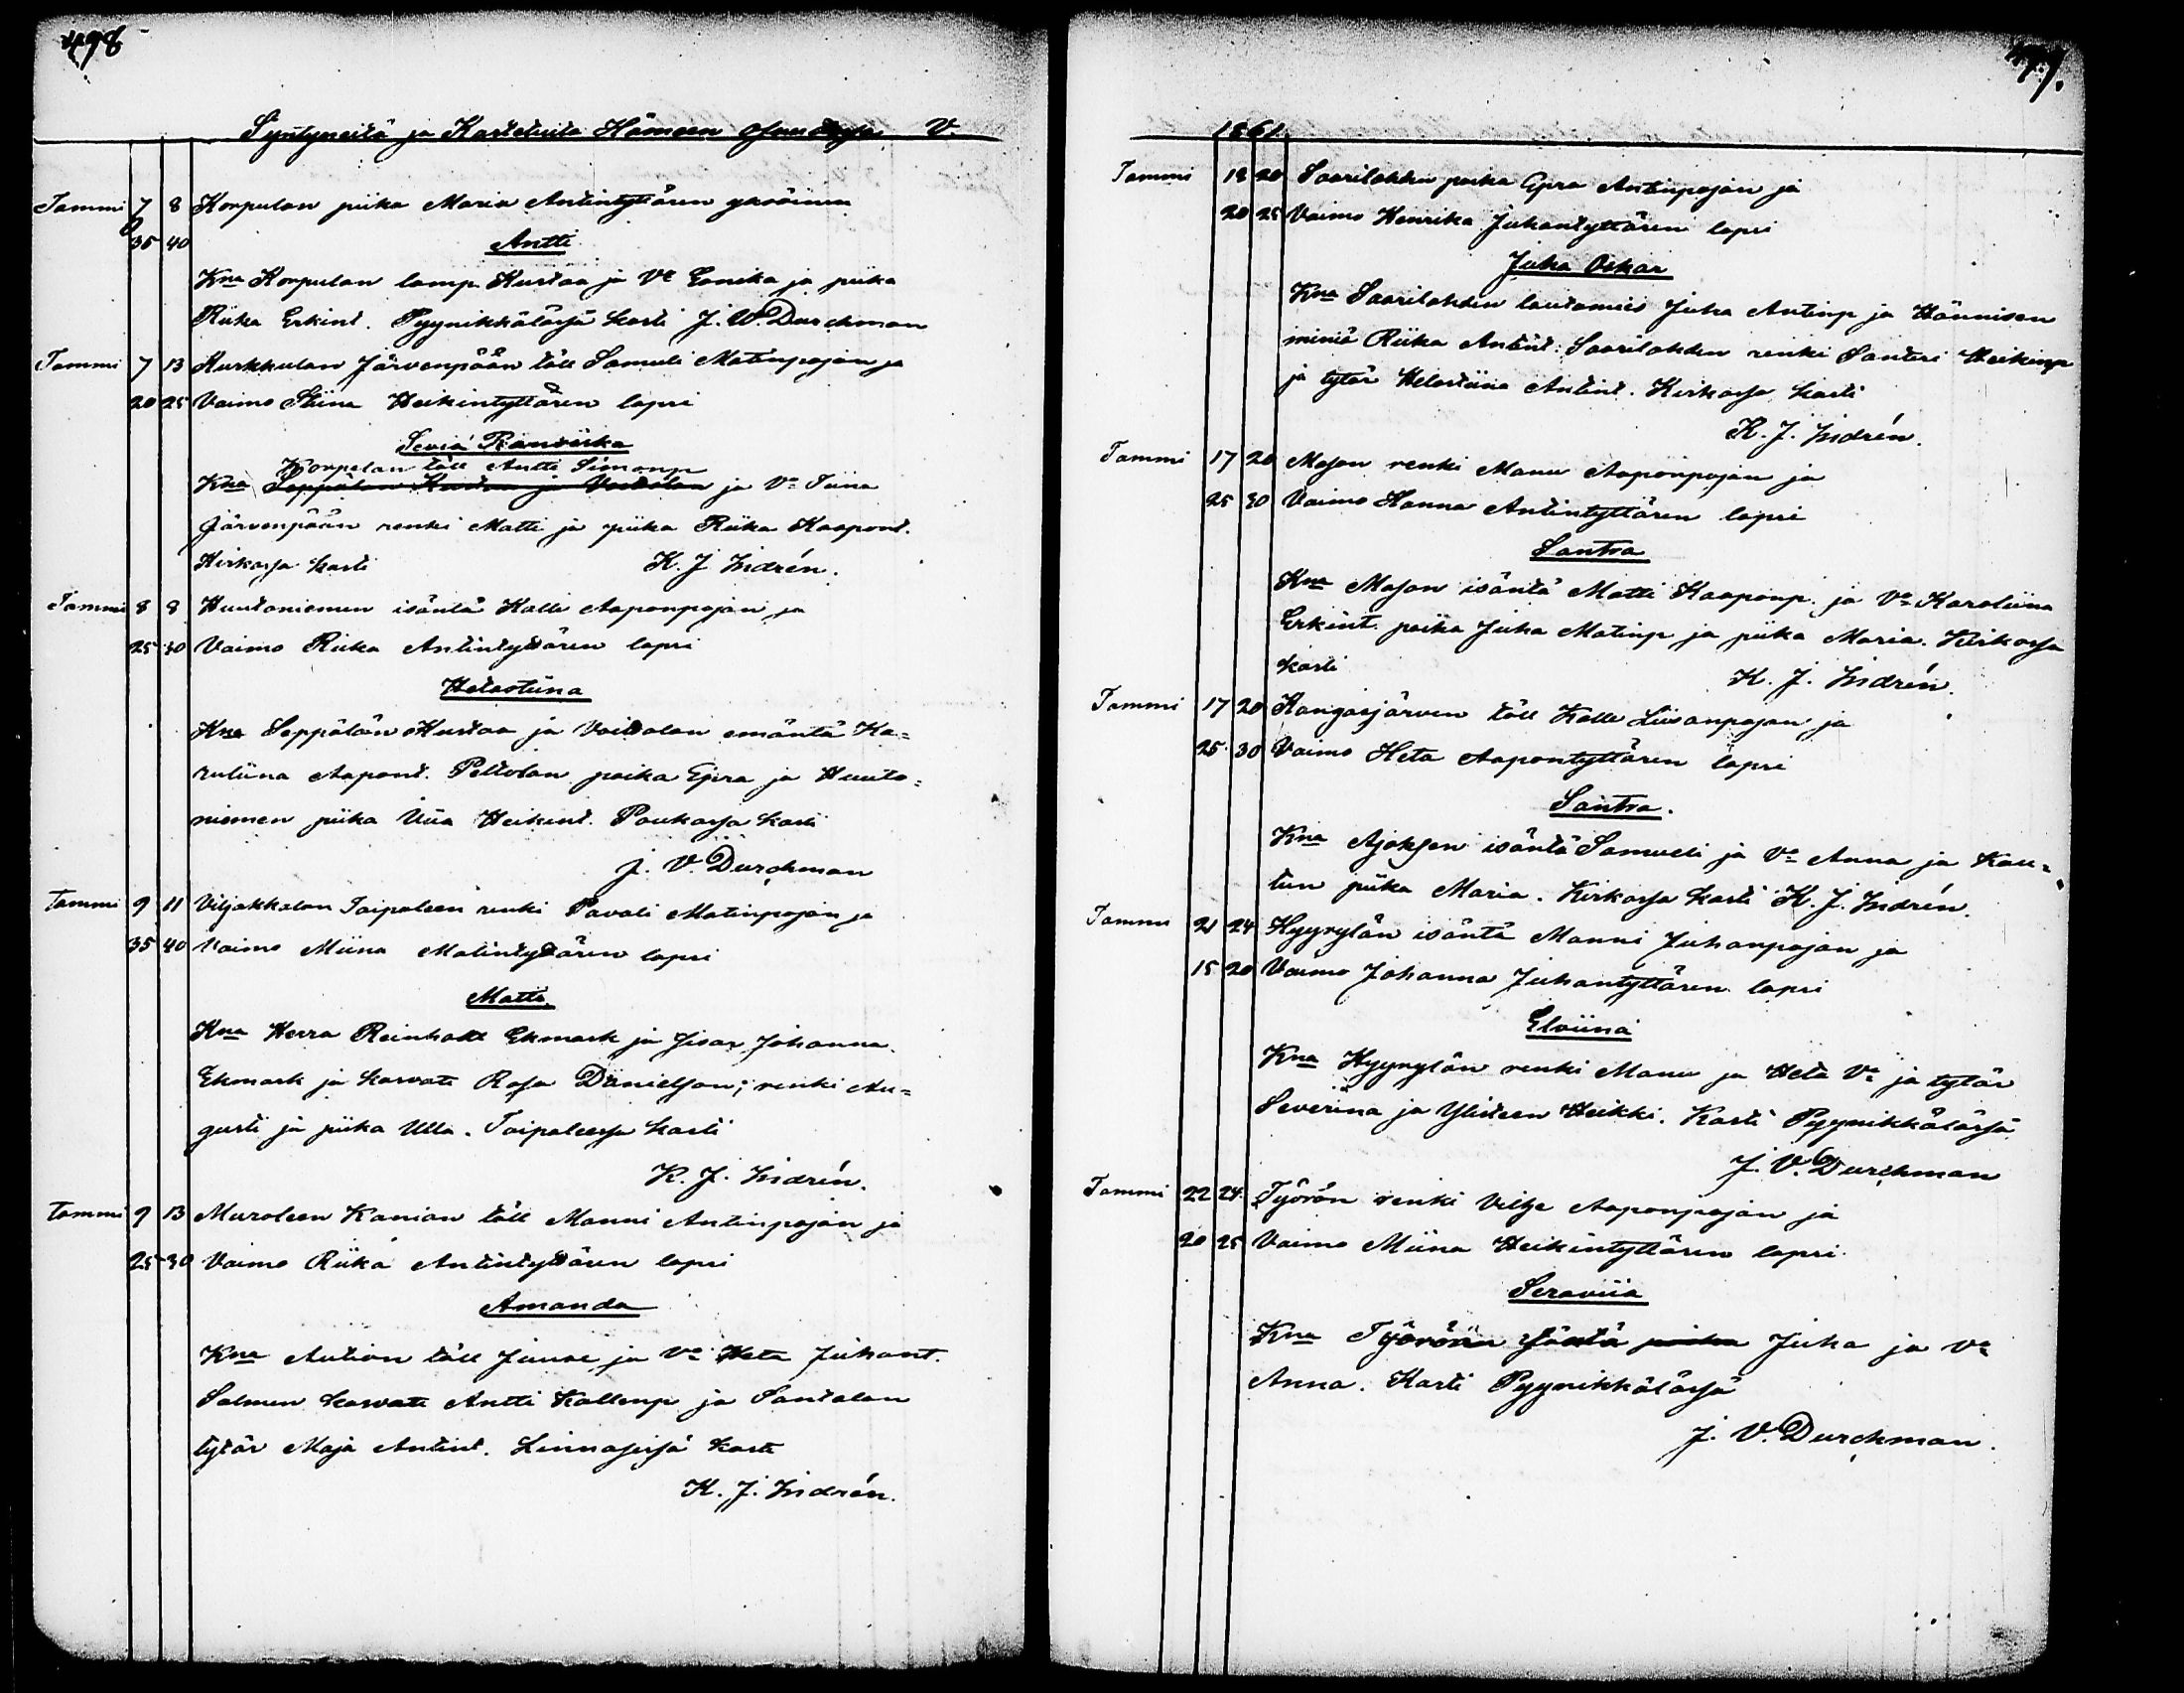 498
Syntyneitä ja Kastetuita Hämeen osuudessa V.
Tammi 7 8 Korpulan piika Maria Antintyttären
35 40 Antti
Kna Korpulan lamp. Kustaa ja Vo Eenika ja piika
Riika Erkint. Pyynikkälässä kasti J. W. Durchman
Tammi 7 13 Kurkkulan Järvenpään töll Samuli Matinpojan ja
20 25 Vaimo Stiina Heikintyttären lapsi
Korpelan töll Antti Simonp
Kna Seppälän Kustaa ja ja Vo Tiina
Järvenpään renki Matti ja piika Riika Kaapont.
Kirkossa kasti K. J. Indrén.
Tammi 8 8 Huutoniemen isäntä Kalle Aaponpojan ja
25 30 Vaimo Riika Antintyttären lapsi
Hetastiina
Kna Seppälän Kustaa ja Voidolan emäntä Ka=
ruliina Aapont. Peltolan poika Epra ja Huuto=
niemen piika Uua Heikint. Poukassa kasti
J. V. Durchman
Tammi 9 11 Viljakkalan Taipaleen renki Pavali Matinpojan ja
35 40 Vaimo Miina Matintyttären lapsi
Matti
Kna Herra Reinholt Ekmark ja Johanna
Ekmark ja kasvatti Rosa Danielson; renki Au=
gusti ja piika Ulla. Taipaleessa kasti
K. J. Indrén.
Tammi 9 13 Muroleen Kanian töll Manni Antinpojan ja
25 30 Vaimo Riika Antintyttären lapsi
Amanda
Kna Aution töll Juuse ja Vo Heta Juhant.
Salmen kasvatti Antti Kallenp ja Santalan
tytär Maja Antint. Linnasissa kasti
K. J. Indrén.
1861.
Tammi 18 20 Saarilahden poika Epra Antinpojan ja
20 25 Vaimo Henrika Juhantyttären lapsi
Juha Oskar
Kna Saarilahden lautamies Juha Antinp ja Hännisen
miniä Riika Antint: Saarilahden renki Santeri Heikinp
ja tytär Hetastiina Antint. Kirkossa kasti
K. J. Indrén.
Tammi 17 20 Mason renki Manu Aaponpojan ja
25 30 Vaimo Hanna Antintyttären lapsi
Santra
Kna Mason isäntä Matti Kaaponp. ja Vo Karoliina
Erkint. poika Juha Matinp ja piika Maria. Kirkossa
kasti K. J. Indrén.
Tammi 17 20 Kangasjärven töll Kalle Liisanpojan ja
25 30 Vaimo Heta Aapontyttären lapsi
Santra.
Kna Ajoksen isäntä Samueli ja Vo Anna ja Kau=
tun piika Maria. Kirkossa kasti K. J. Indrén.
Tammi 21 24 Hyyrylän isäntä Manni Juhanpojan ja
15 20 Vaimo Johanna Juhantyttären lapsi
Elviina
Kna Hyyrylän renki Manu ja Heta Vo ja tytär
Severina ja Ylisteen Heikki. Kasti Pyynikkälässä
J. V. Durchman
Tammi 22 24 Työrön renki Vilhe Aaponpojan ja
20 25 Vaimo Miina Heikintyttären lapsi.
Seraviia
Kna Työrön isäntä poika Juha ja Vo
Anna. Kasti Pyynikkälässä
J. V. Durchman.